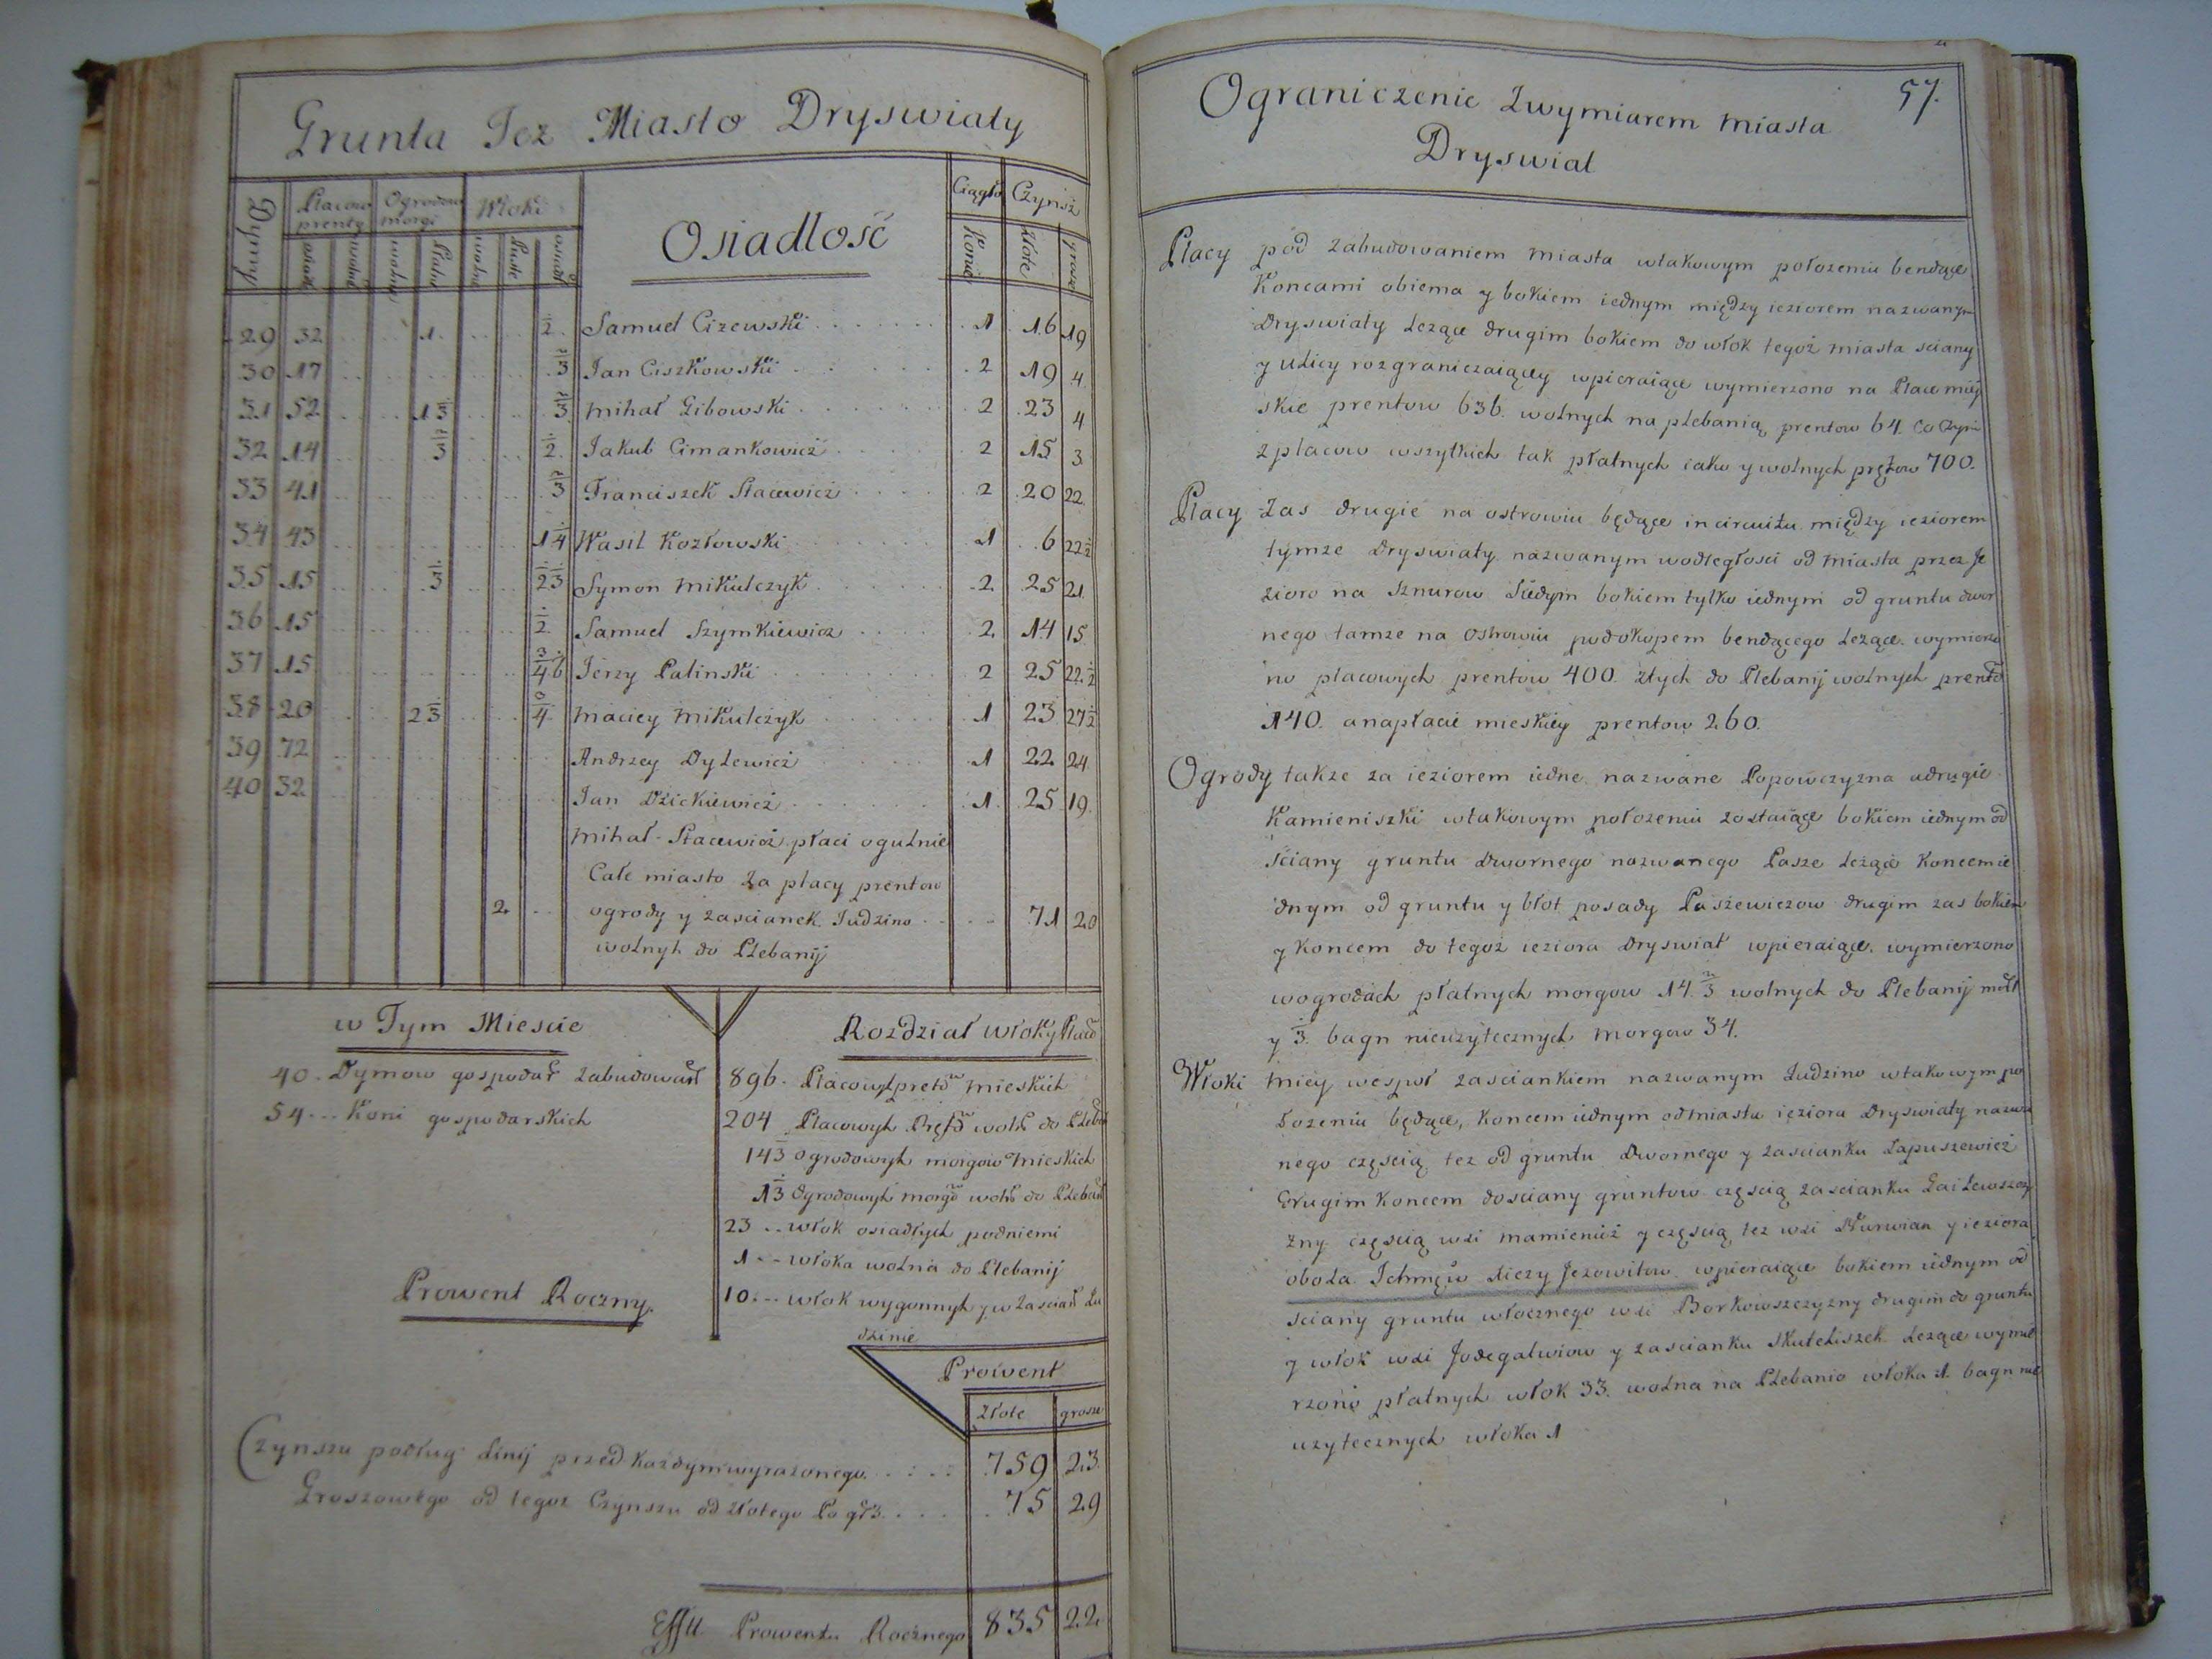 Grunta Tez Miasto Dryswiaty
Dymy
Placow prenty
Ogrodow morgi
Włoki
Osiadlość
Ciągło
Czynsz
wolne
Płatn
wolna
Puste
osiadł
Konie
złote
grosze
29 32 1. 1/2 Samuel Cizewski 1 16 19
30 17 2/3 Jan Ciszkowski 2 19 4
31 52 1 1/3 2/3 Mihał Gibowski 2 23 4
32 14 2/3 1/2 Jakub Cimankowicz 2 15 3
33 41 2/3 Franciszek Stacewicz 2 20 22
34 43 1 1/4 Wasil Kozłowski 1 6 22 1/2
35 15 1/3 1/2 1/3 Symon Mikulczyk 2 25 21
36 15 1/2 Samuel Szymkiewicz 2 14 15
37 15 3/4 1/6 Jerzy Palinski 2 25 22 1/2
38 20 2 1/3 Maciey Mikulczyk 1 23 27 1/2
39 72 Andrzey Dylewicz 1 22 24
40 32 Jan Dzickiewicz 1 25 19
Mihał Stacewicz płaci ogulnie
Całe miasto za placy prentow
2 ogrody y zascianek Judzino 71 20
wolnyh do Plebanij
w Tym Miescie
40. Dymow gospodar zabudowań
54 --- Koni gospodarskich
Rozdział włok y Placo
896. Placowy pretow mieskich
204 Placowyh Pręto wolń do Pleba
14 2/3 ogrodowyh morgow mieskich
1 1/3 Ogrodowyh morgo wolń do Pleban
23 -- włok osiadłych podniemi
1 -- włoka wolna do Plebanij
10 --- włok wygonnyh y w zascian Lu
dzinie
Prowent Roczny.
Prowent
złote grosze
Czynszu podług linij przed każdym wyrażonego 759 23
Groszowego od tegoz Czynszu od złotego Po gr 3. 75 29
Prowentu Rocznego 835 22
57.
Ograniczenie zwymiarem miasta
Dryswiat
Placy pod zabudowaniem miasta wtakowym położeniu bendące
Koncami obiema y bokiem iednym między ieziorem nazwanym
Dryswiaty leżące drugim bokiem do włok tegoż miasta sciany
y ulicy rozgraniczaiącey wpieraiące wymierzono na Place miey
skie prentow 636. wolnych na plebanią prentow 64. co czyni
z placow wszytkich tak płatnych iako y wolnych prętow 700.
Placy zas drugie na ostrowiu będące in circuitu między ieziorem
tymze Dryswiaty nazwanym wodległosci od miasta przez Je
zioro na sznurow siedym bokiem tylko iednym od gruntu dwor
nego tamze na ostrowiu podokopem bendącego leżące wymierzo
no placowych prentow 400. ztych do Plebanij wolnych prento
140. anapłacie mieskiey prentow 260.
Ogrody takze za ieziorem iedne nazwane Popowczyzna adrugie
Kamieniszki wtakowym położeniu zostaiące bokiem iednym od
sciany gruntu dwornego nazwanego Pasze leżące koncem ie
dnym od gruntu y błot posady Paszewiczow drugim zas bokiem
y koncem do tegoz ieziora Dryswiat wpieraiące, wymierzono
wogrodach płatnych morgow 14 2/3 wolnych do Plebanij morg
y 1/3. bagn nieużytecznych morgow 34.
Włoki miey wespoł zasciankiem nazwanym Ludzino wtakowym po
łozeniu będące, koncem iednym odmiasta ieziora Dryswiaty nazwa
nego częścią tez od gruntu dwornego y zascianku Łapuszewicz
Drugim koncem dosciany gruntow częscią zascianku Gailewszczy
zny częscią wsi mamieniiż y częscią tez wsi Nurwian y ieziora
oboda wpieraiące bokiem iednym od
sciany gruntu włocznego wsi Borkowszczyzny drugim do gruntu
y włok wsi Jodegalwiow y zascianku Skuteliszek leżące wymie
rzono płatnych włok 33. wolna na Plebanio włoka 1. bagn nie
użytecznych włoka 1